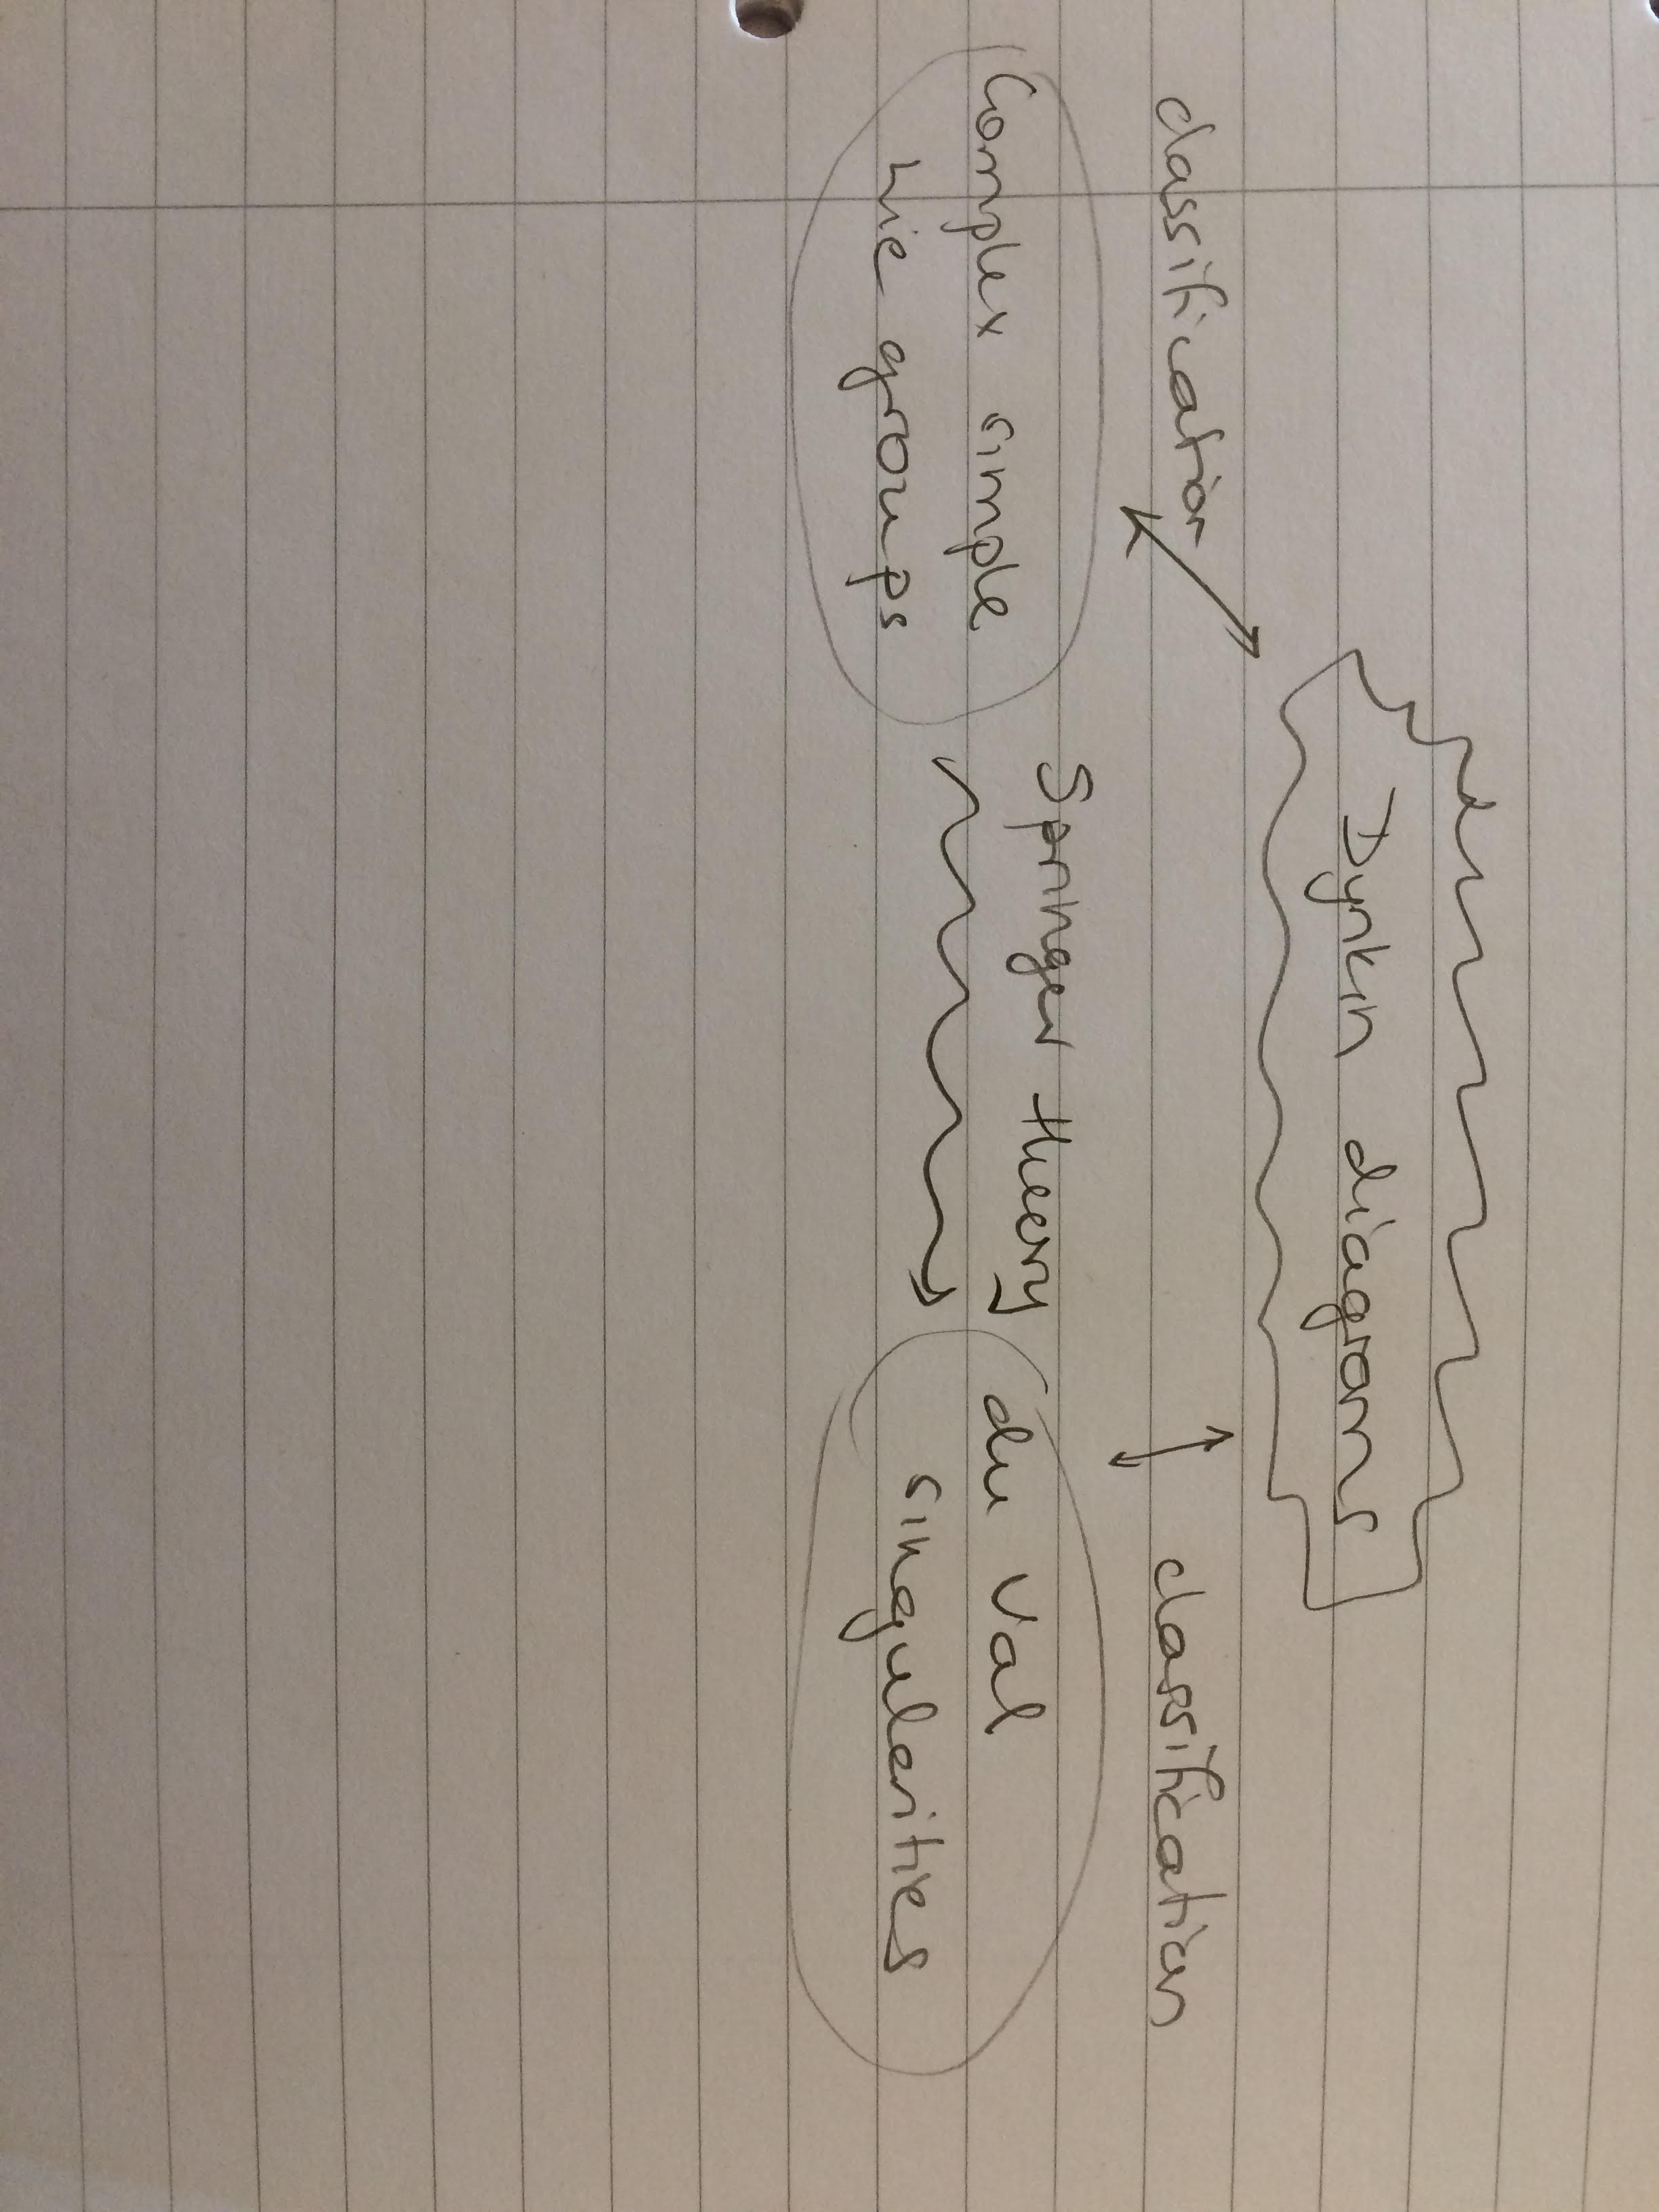 Dynkin diagrams
classification
classification
Complex simple
Lie groups
Springer theory
du Val
singularities